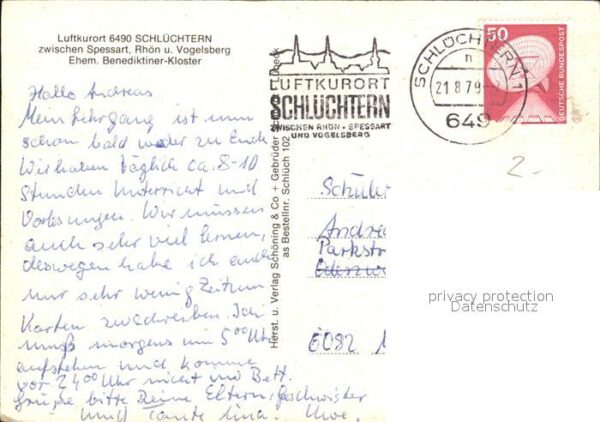 Luftkurort 6490 SCHLÜCHTERN
zwischen Spessart, Rhön u. Vogelsberg
Ehem. Benediktiner-Kloster
Hallo Andreas
Mein Lehrgang ist nun
schon bald wieder zu Ende
Wir haben täglich ca. 8-10
Stunden Unterricht und
Vorlesungen. Wir müssen
auch sehr viel lernen,
deswegen habe ich auch
nur sehr wenig Zeit um
Karten zuschreiben. Ich
muß morgens um 5 00 Uhr
aufstehen und komme
vor 24 00 Uhr nicht ins Bett.
Grüße bitte Deine Eltern, Geschwister
und Tante Lina. Uwe.
Herst. u. Verlag Schöning & Co + Gebrüder
as Bestellnr. Schlüch 102
LUFTKURORT
SCHLÜCHTERN
ZWISCHEN RHÖN · SPESSART
UND VOGELSBERG
SCHLÜCHTERN 1
n
21.8.79
649
50
DEUTSCHE BUNDESPOST
2.-
Schüler
Andrea
Parkstr
6082
privacy protection
Datenschutz